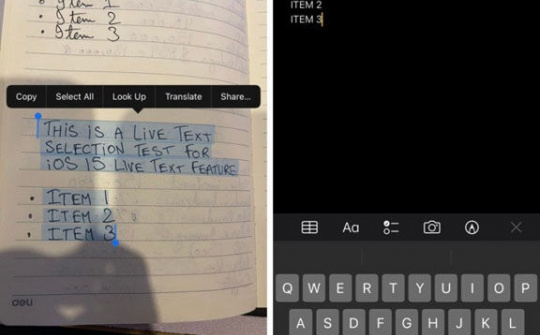 Item 1
Item 2
Item 3
Copy Select All Look Up Translate Share...
THIS IS A LIVE TEXT
SELECTION TEST FOR
iOS 15 LIVE TEXT FEATURE
• ITEM 1
• ITEM 2
• ITEM 3
deli
ITEM 2
ITEM 3
Aa
Q W E R T Y U I O P
A S D F G H J K L